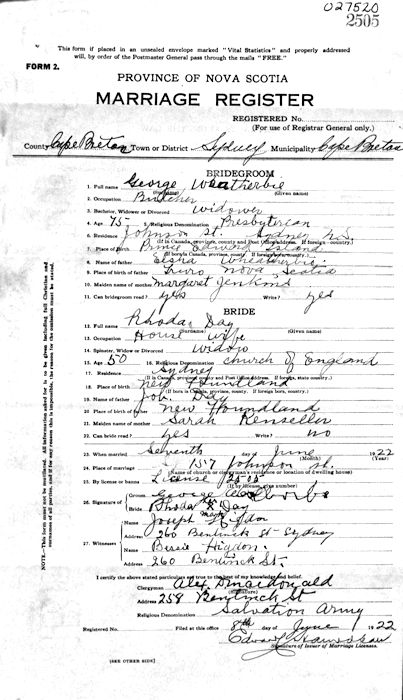 027520
2505
This form if placed in an unsealed envelope marked "Vital Statistics" and properly addressed
will, by order of the Postmaster General pass through the mails "FREE."
FORM 2.
PROVINCE OF NOVA SCOTIA
MARRIAGE REGISTER
REGISTERED No.
(For use of Registrar General only.)
County Cape Breton Town or District Sydney Municipality Cape Breton
BRIDEGROOM
1. Full name George Weatherbie
(Given name)
2. Occupation Butcher
3. Bachelor, Widower or Divorced Widower
4. Age 75 5. Religious Denomination Presbyterian
6. Residence Johnson St. Sydney N.S.
(If in Canada, province, county and Post Office address. If foreign, country.)
7. Place of Birth Prince Edward Island
8. Name of father Elisha Wheatherbie
9. Place of birth of father Truro Nova Scotia
10. Maiden name of mother Margaret Jenkins
11. Can bridegroom read? yes Write? yes
BRIDE
12. Full name Rhoda Day
(Surname) (Given name)
13. Occupation House wife
14. Spinster, Widow or Divorced Widow
15. Age 50 16. Religious Denomination Church of England
17. Residence Sydney
(If in Canada, province, county and Post Office address. If foreign, state country.)
18. Place of birth New Foundland
(If born in Canada, province, county. If foreign born, country.)
19. Name of father Job Day
20. Place of birth of father New Foundland
21. Maiden name of mother Sarah
22. Can bride read? yes Write? no
23. When married Seventh day of June 1922
(Month) (Year)
24. Place of marriage 157 Johnson St.
(Name of church or clergyman's residence or location of dwelling house)
25. By license or banns License 2505
(If by license, give number)
26. Signature of Groom George
Bride Rhoda X Day
mark
27. Witnesses
Name Joseph Higdon
Address 260 Bentinck St Sydney
Name Bessie Higdon
Address 260 Bentinck St.
I certify the above stated particulars are true to the best of my knowledge and belief.
Clergyman Alex Macdonald
(Signature)
Address 258 Bentinck St
Religious Denomination Salvation Army
Registered No. Filed at this office 8th day of June 1922
Edward
Signature of Issuer of Marriage Licenses.
[SEE OTHER SIDE]
NOTE.—This form must not be mutilated. All information asked for is to be given, including full Christian and
surnames of all parties, and if for any reason this is impossible, the reason for the omission must be stated.